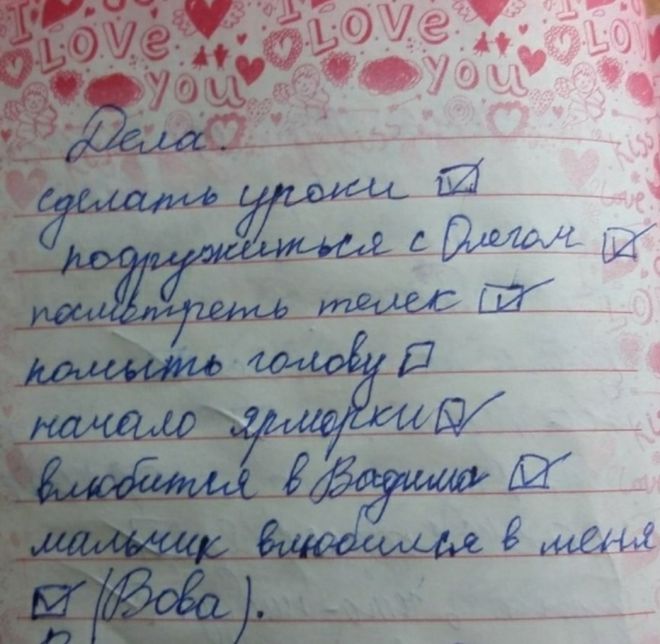 I LOVE YOU I LOVE YOU I LOVE
Дела.
Kiss
сделать уроки ☑
Love
подружиться с Олегом ☑
посмотреть телек ☑
помыть голову ☐
начало ярморки ☑
влюбится в Вадима ☑
мальчик влюбился в меня
☑ (Вова).